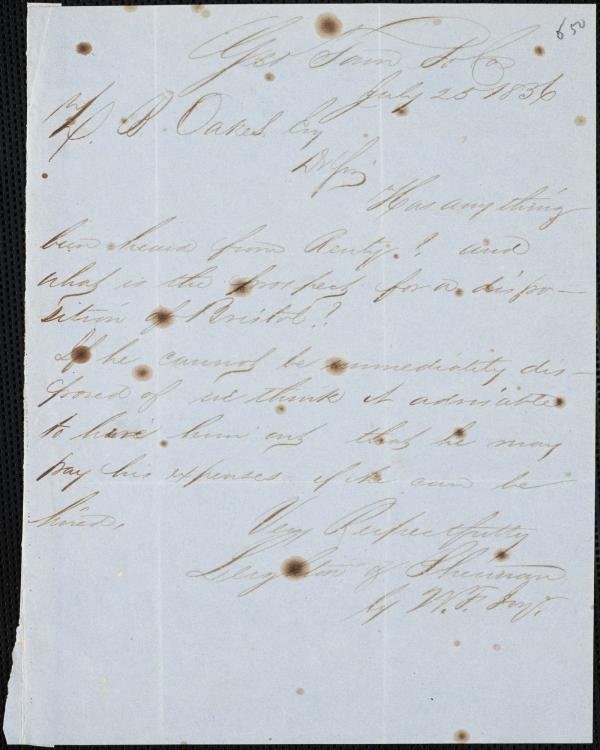 650
Geo Town So Ca
July 25 1856
Z. B. Oakes Esq
D Sir
Has any thing
been heard from Renty? and
what is the prospect for a dispo-
sition of Bristol?
If he cannot be immediatily dis-
posed of we think it advisable
to have him out that he may
pay his expenses if he can be
hired,
Very Respectfully
Leighton & Sherman
by W. F.